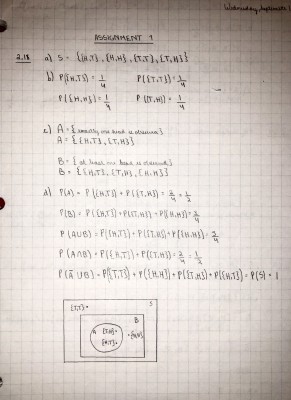 Wednesday, September
ASSIGNMENT 1
2.18 a) S = {{H,T}, {H,H}, {T,T}, {T,H}}
b) P({H,T}) = 1/4 P({T,T}) = 1/4
P({H,H}) = 1/4 P({T,H}) = 1/4
c) A = {exactly one head is observed}
A = {{H,T}, {T,H}}
B = {at least one head is observed}
B = {{H,T}, {T,H}, {H,H}}
d) P(A) = P({H,T}) + P({T,H}) = 2/4 = 1/2
P(B) = P({H,T}) + P({T,H}) + P({H,H}) = 3/4
P(A∪B) = P({H,T}) + P({T,H}) + P({H,H}) = 3/4
P(A∩B) = P({H,T}) + P({T,H}) = 2/4 = 1/2
P(Ā∪B) = P({T,T}) + P({H,H}) + P({T,H}) + P({H,T}) = P(S) = 1
{T,T} S
B
A {T,H} {H,H}
{H,T}